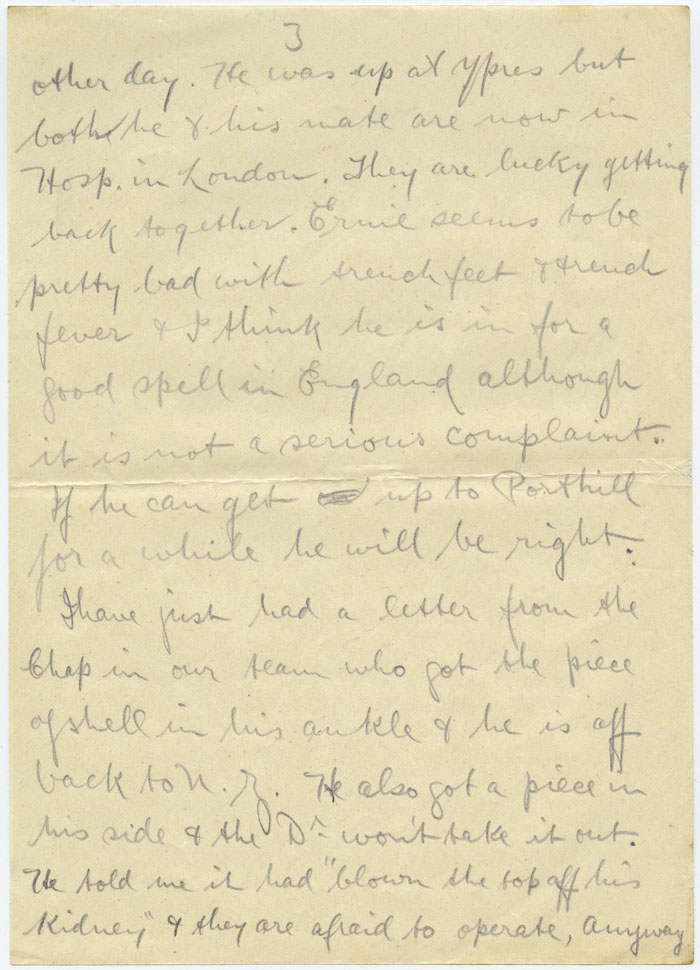 3
other day. He was up at Ypres but
both he & his mate are now in
Hosp. in London. They are lucky getting
back together. Ernie seems to be
pretty bad with trench feet & trench
fever & I think he is in for a
good spell in England although
it is not a serious complaint.
If he can get up to Porthill
for a while he will be right.
I have just had a letter from the
Chap in our team who got the piece
of shell in his ankle & he is off
back to N.Z. He also got a piece in
his side & the Dr won't take it out.
He told me it had "blown the top off his
Kidney" & they are afraid to operate, Anyway